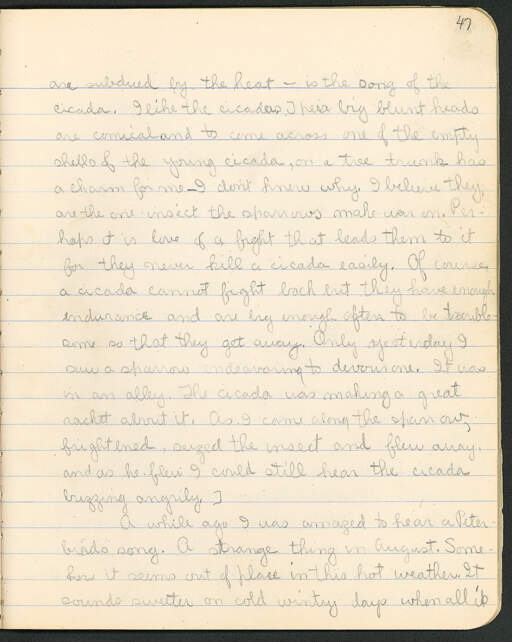 47
are subdued by the heat - is the song of the
cicada. I like the cicadas, Their big blunt heads
are comical and to come across one of the empty
shells of the young cicada, on a tree trunk has
a charm for me - I don't know why. I believe they
are the one insect the sparrows make war on. Per-
haps it is love of a fight that leads them to it
for they never kill a cicada easily. Of course,
a cicada cannot fight back but they have enough
endurance and are big enough often to be trouble-
some so that they get away. Only yesterday I
saw a sparrow endeavoring to devour one. It was
in an alley. The cicada was making a great
racket about it. As I came along the sparrow,
frightened, seized the insect and flew away.
and as he flew I could still hear the cicada
buzzing angrily. ]
A while ago I was amazed to hear a Peter-
bird's song. A strange thing in August. Some-
how it seems out of place in this hot weather. It
sounds sweeter on cold wintry days when all is